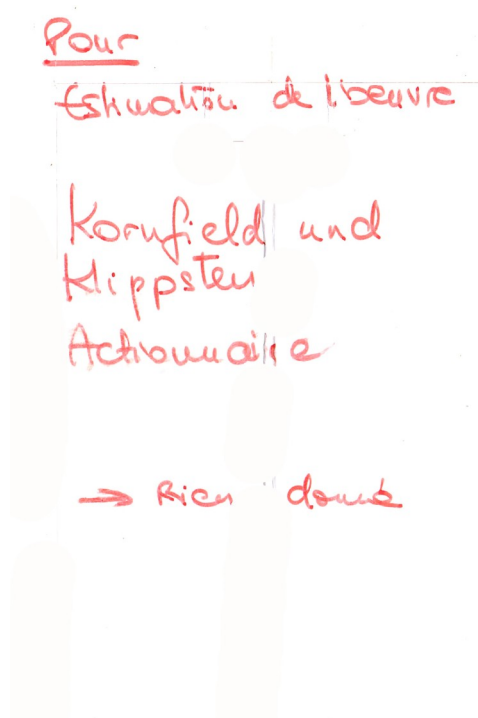 Pour
Estimation de l'oeuvre
Kornfield und
Klippsten
Actionnaire
→ Rien donné